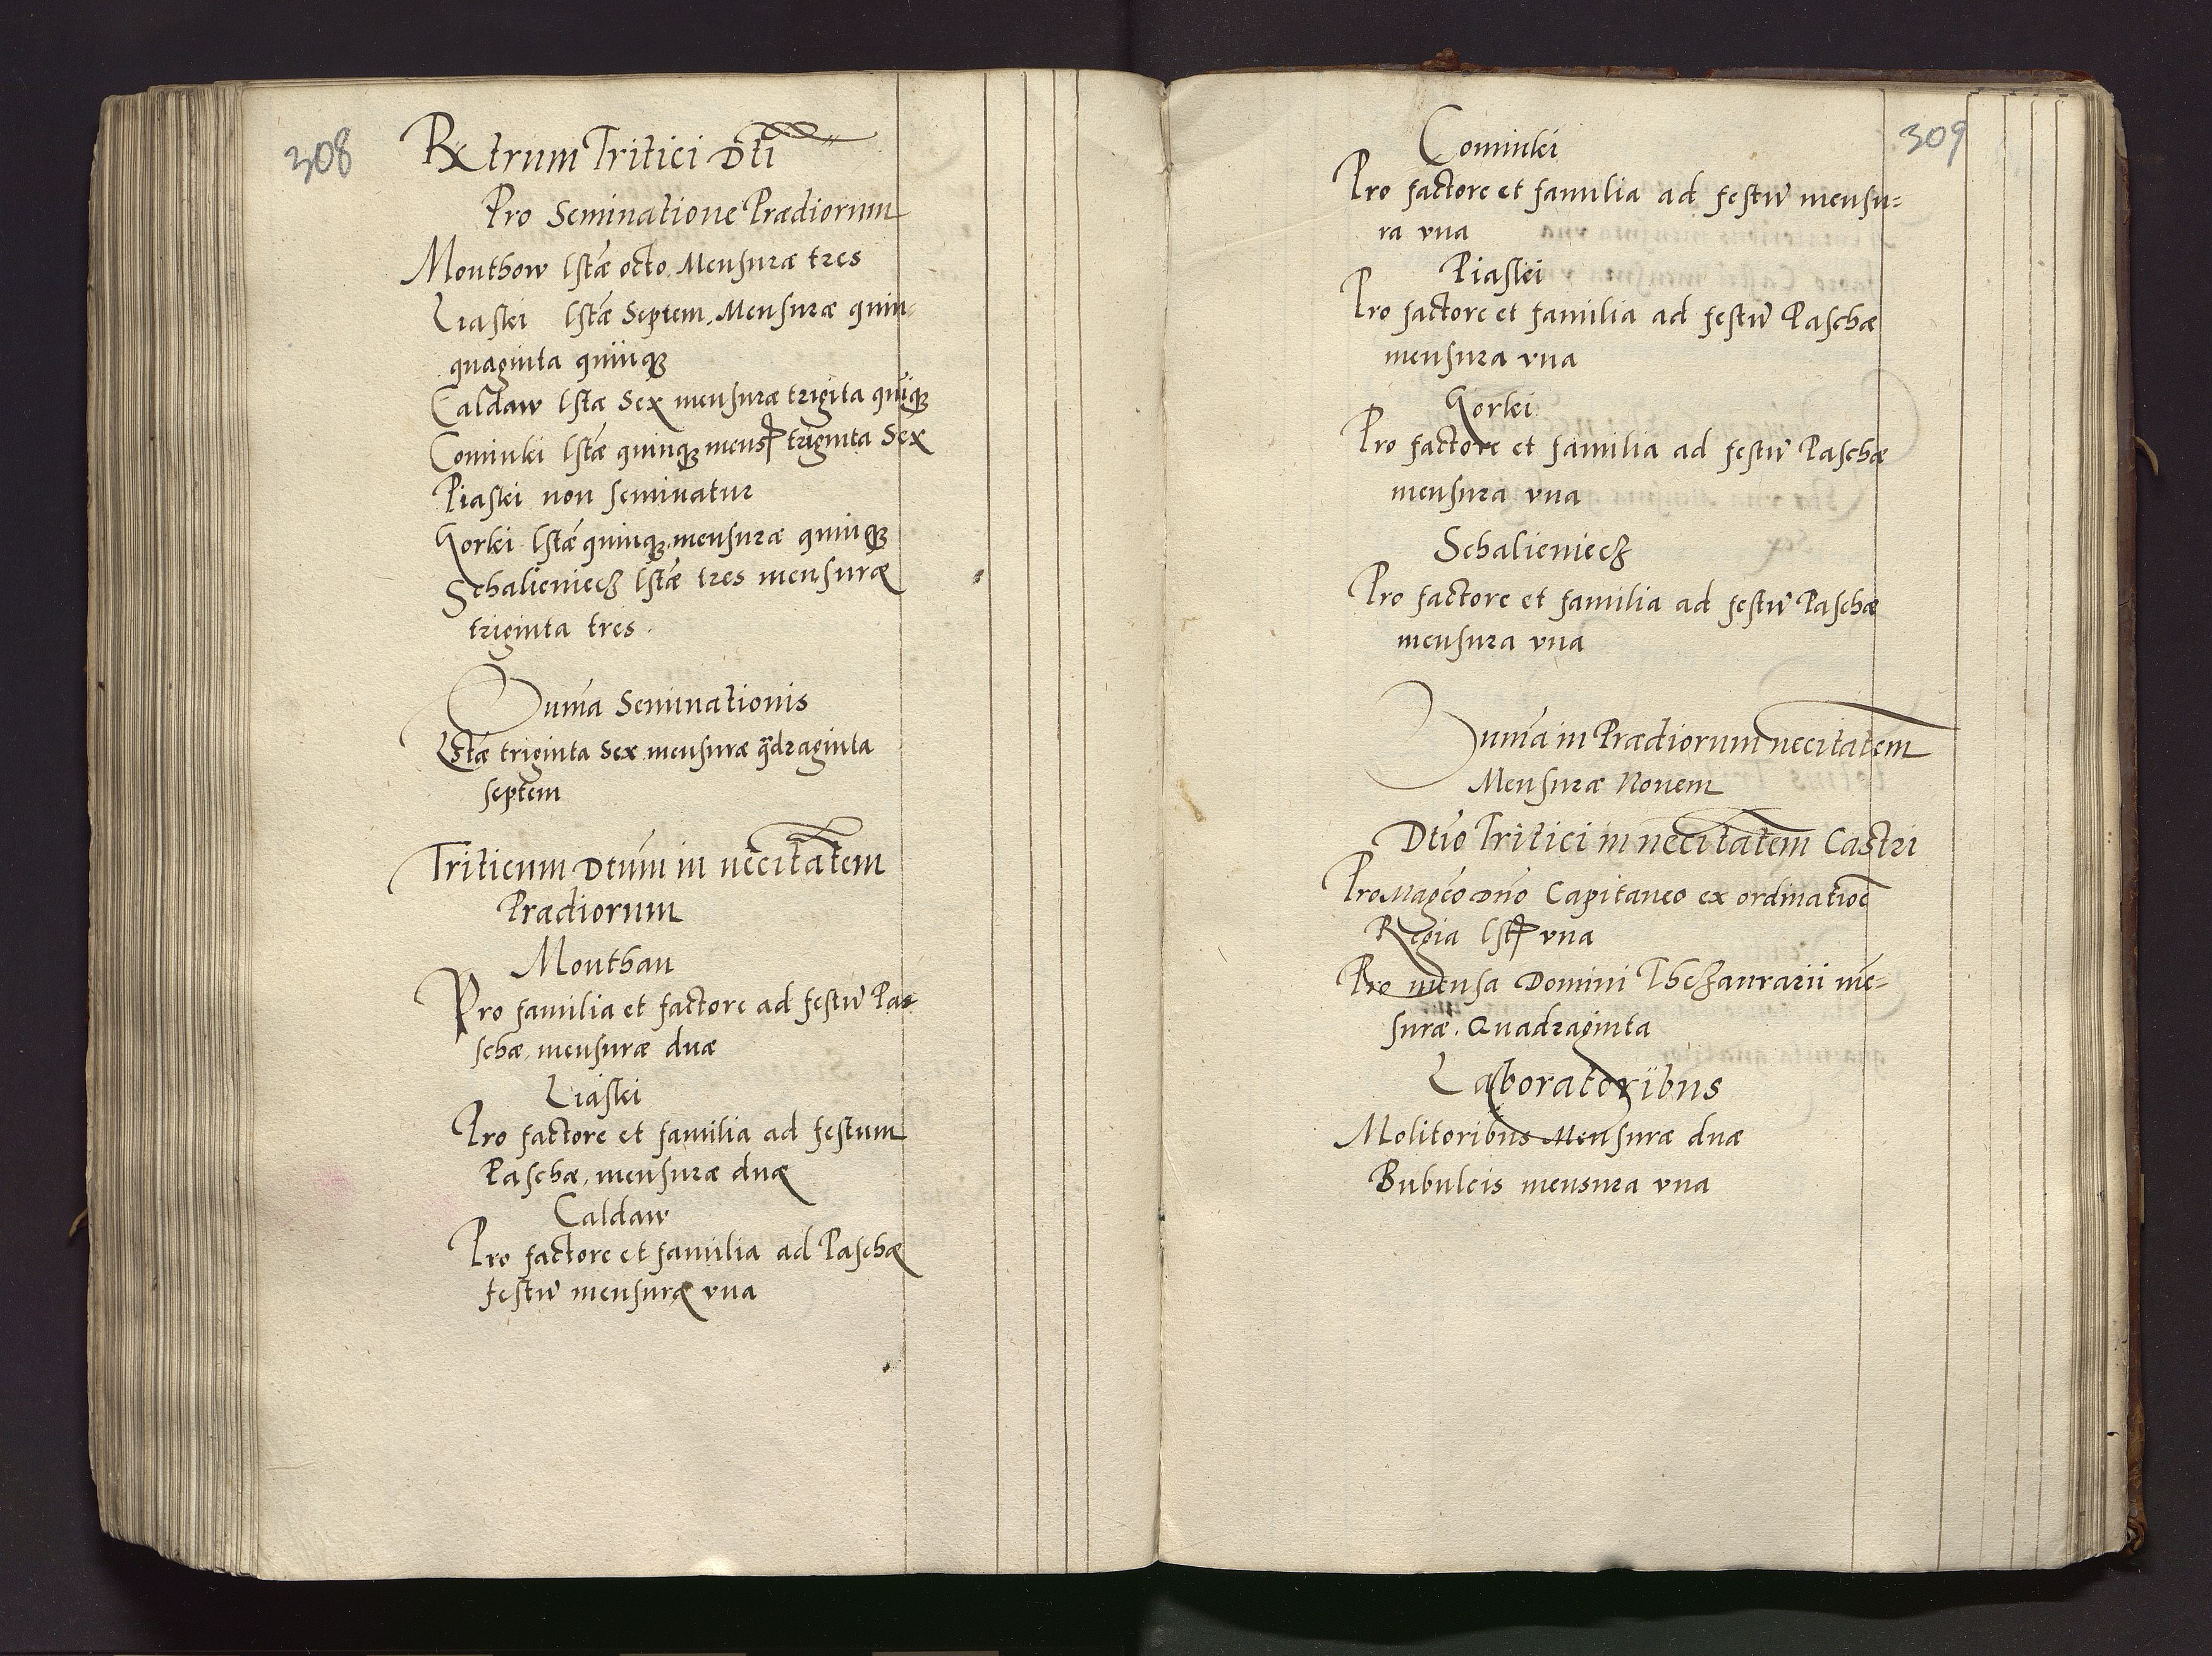 308
Rxtrum Tritici Dti
Pro Seminatione Prædiorum
Monthow lstæ octo. Mensuræ tres
Liaski lstæ Septem. Mensuræ quin-
quaginta quinq3
Caldaw lstæ Sex mensuræ trigĩta quĩq3
Cominki lstæ quinq3 mens triginta Sex
Piaski non seminatur
Gorki lstæ quinq3 mensuræ quinq3
Schalieniecz lstæ tres mensuræ
triginta tres.
Suma Seminationis
Lstæ triginta Sex mensuræ qdraginta
septem
Triticum Dtum in necitatem
Prædiorum
Monthau
Pro familia et factore ad festũ Pas-
chæ. mensuræ duæ
Liaski
Pro factore et familia ad festum
Paschæ. mensuræ duæ
Caldaw
Pro factore et familia ad Paschæ
festũ mensuræ vna
309
Cominki
Pro factore et familia ad festũ mensu=
ra vna
Piaski
Pro factore et familia ad festũ Paschæ
mensura vna
Gorki
Pro factore et familia ad festũ Paschæ
mensura vna
Schalieniecz
Pro factore et familia ad festũ Paschæ
mensura vna
Suma in Prædiorum necitatem
Mensuræ Nouem
Dtio Tritici in necitatem Castri
Pro Magco Dno Capitaneo ex ordinatioe
Regia lst vna
Pro mensa Domini Thezaurarii mẽ=
suræ. Quadraginta
Laboratoribus
Molitoribus Mensuræ duæ
Bubulcis mensura vna